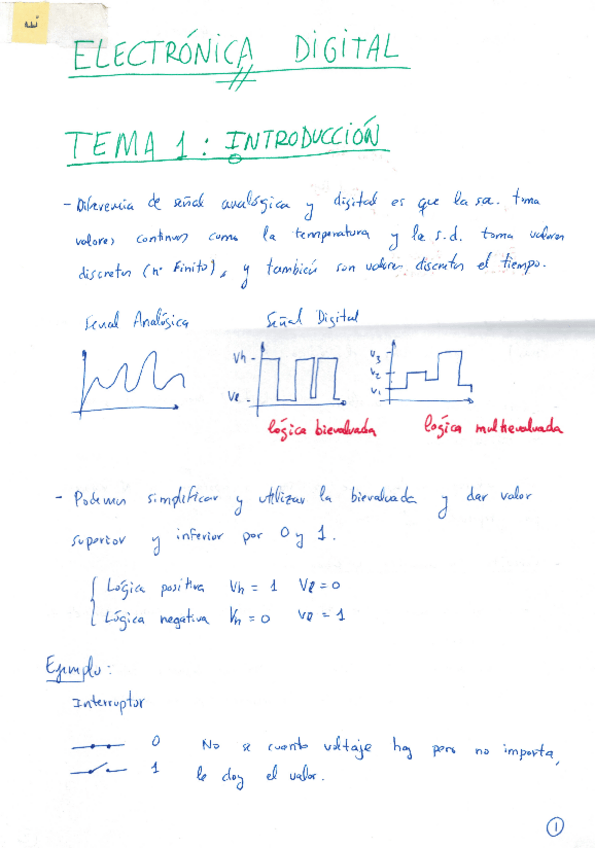 E.
ELECTRÓNICA DIGITAL
TEMA 1 : INTRODUCCIÓN
- Diferencia de señal analógica y digital es que la s.a. toma
valores continuos como la temperatura y la s.d. toma valores
discretos (nº Finito), y también son valores discretos el tiempo.
Señal Analógica Señal Digital
Vh
Vl
V3
V2
V1
lógica bievaluada lógica multievaluada
- Podemos simplificar y utilizar la bievaluada y dar valor
superior y inferior por 0 y 1.
Lógica positiva Vh = 1 Vl = 0
Lógica negativa Vh = 0 Vl = 1
Ejemplo:
Interruptor
0 No se cuanto voltaje hay pero no importa,
1 le doy el valor.
1